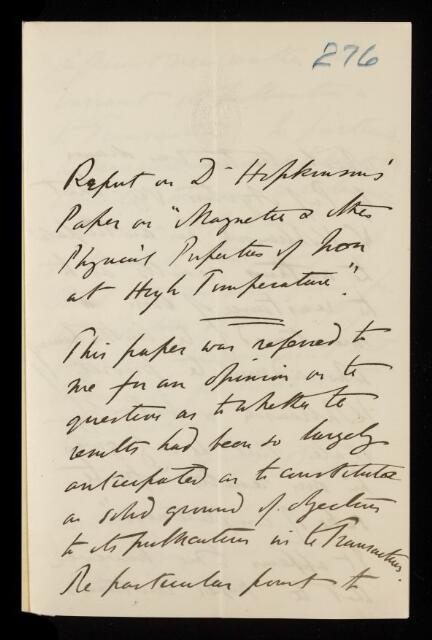 276
Report on Dr Hopkinson's
Paper on "Magnetic & other
Physical Properties of Iron
at High Temperature".
This paper was referred to
me for an opinion on the
question as to whether the
results had been so largely
anticipated as to constitute
a solid ground of objection
to its publication in the Transactions.
The particular point to